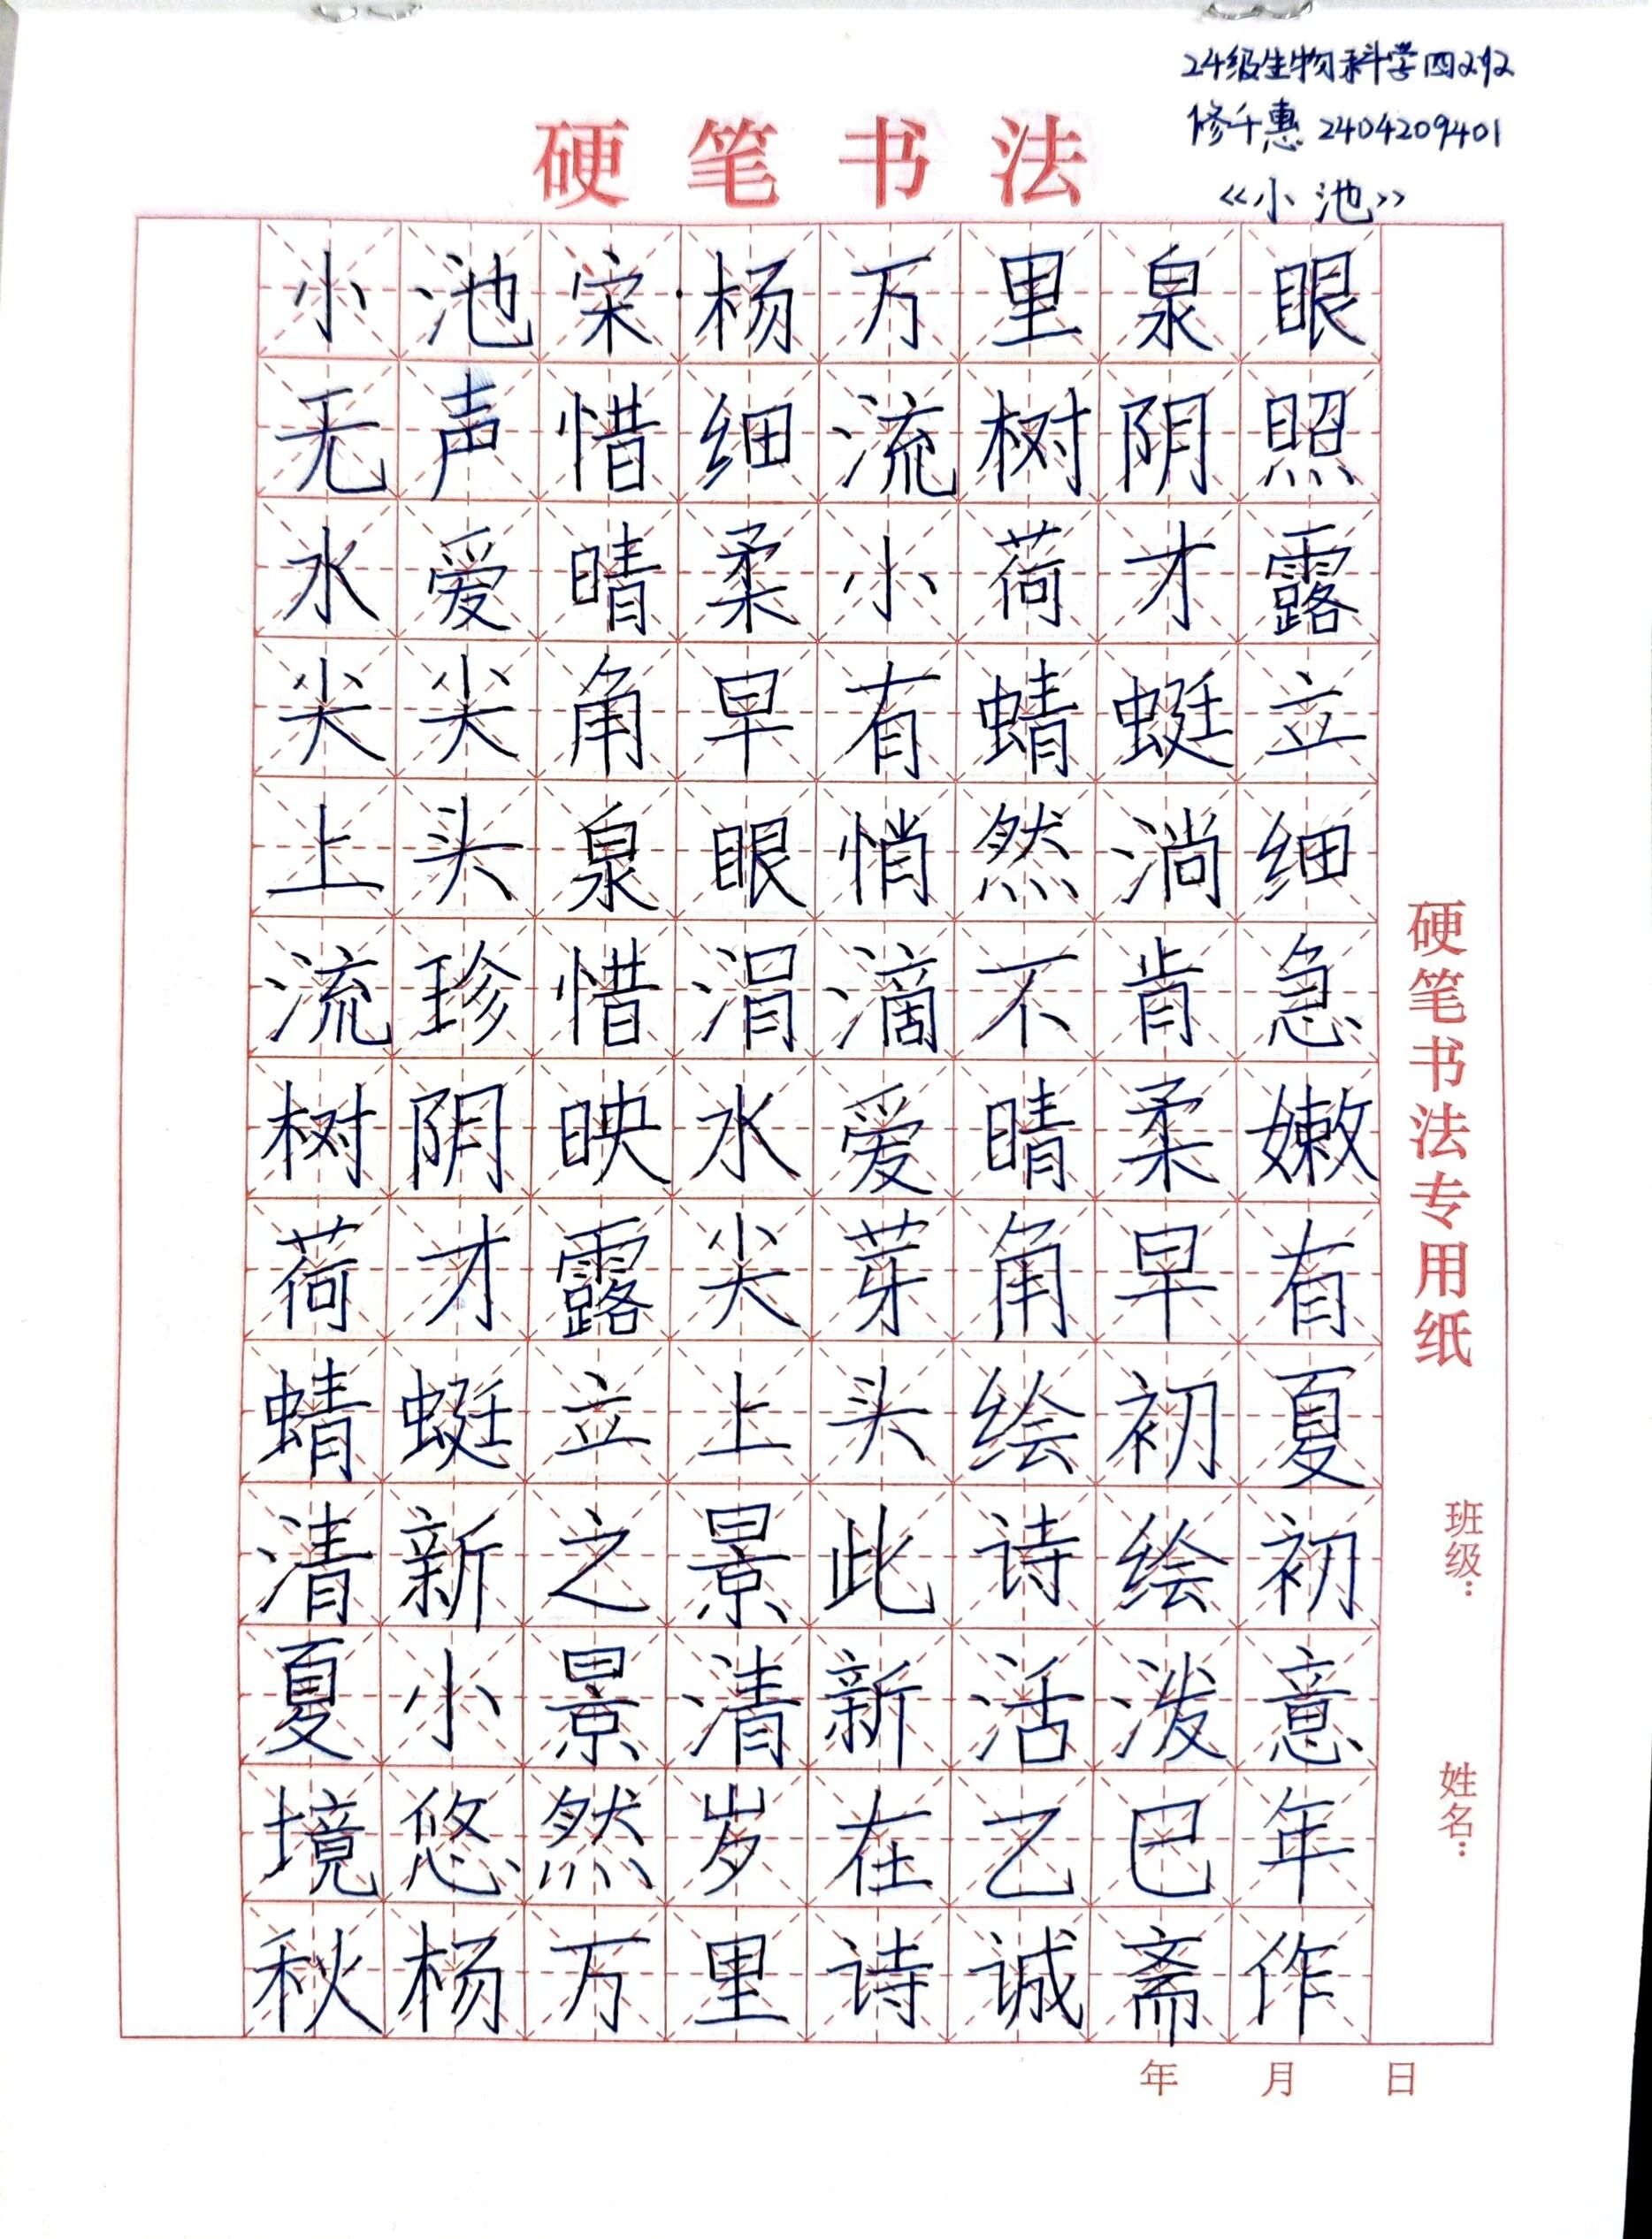 24级生物科学四班
修千惠 2404209401
《小池》
硬笔书法
小池宋·杨万里泉眼
无声惜细流树阴照
水爱晴柔小荷才露
尖尖角早有蜻蜓立
上头泉眼悄然淌细
流珍惜涓滴不肯急
树阴映水爱晴柔嫩
荷才露尖芽角早有
蜻蜓立上头绘初夏
清新之景此诗绘初
夏小景清新活泼意
境悠然岁在乙巳年
秋杨万里诗诚斋作
硬笔书法专用纸
班级：
姓名：
年 月 日